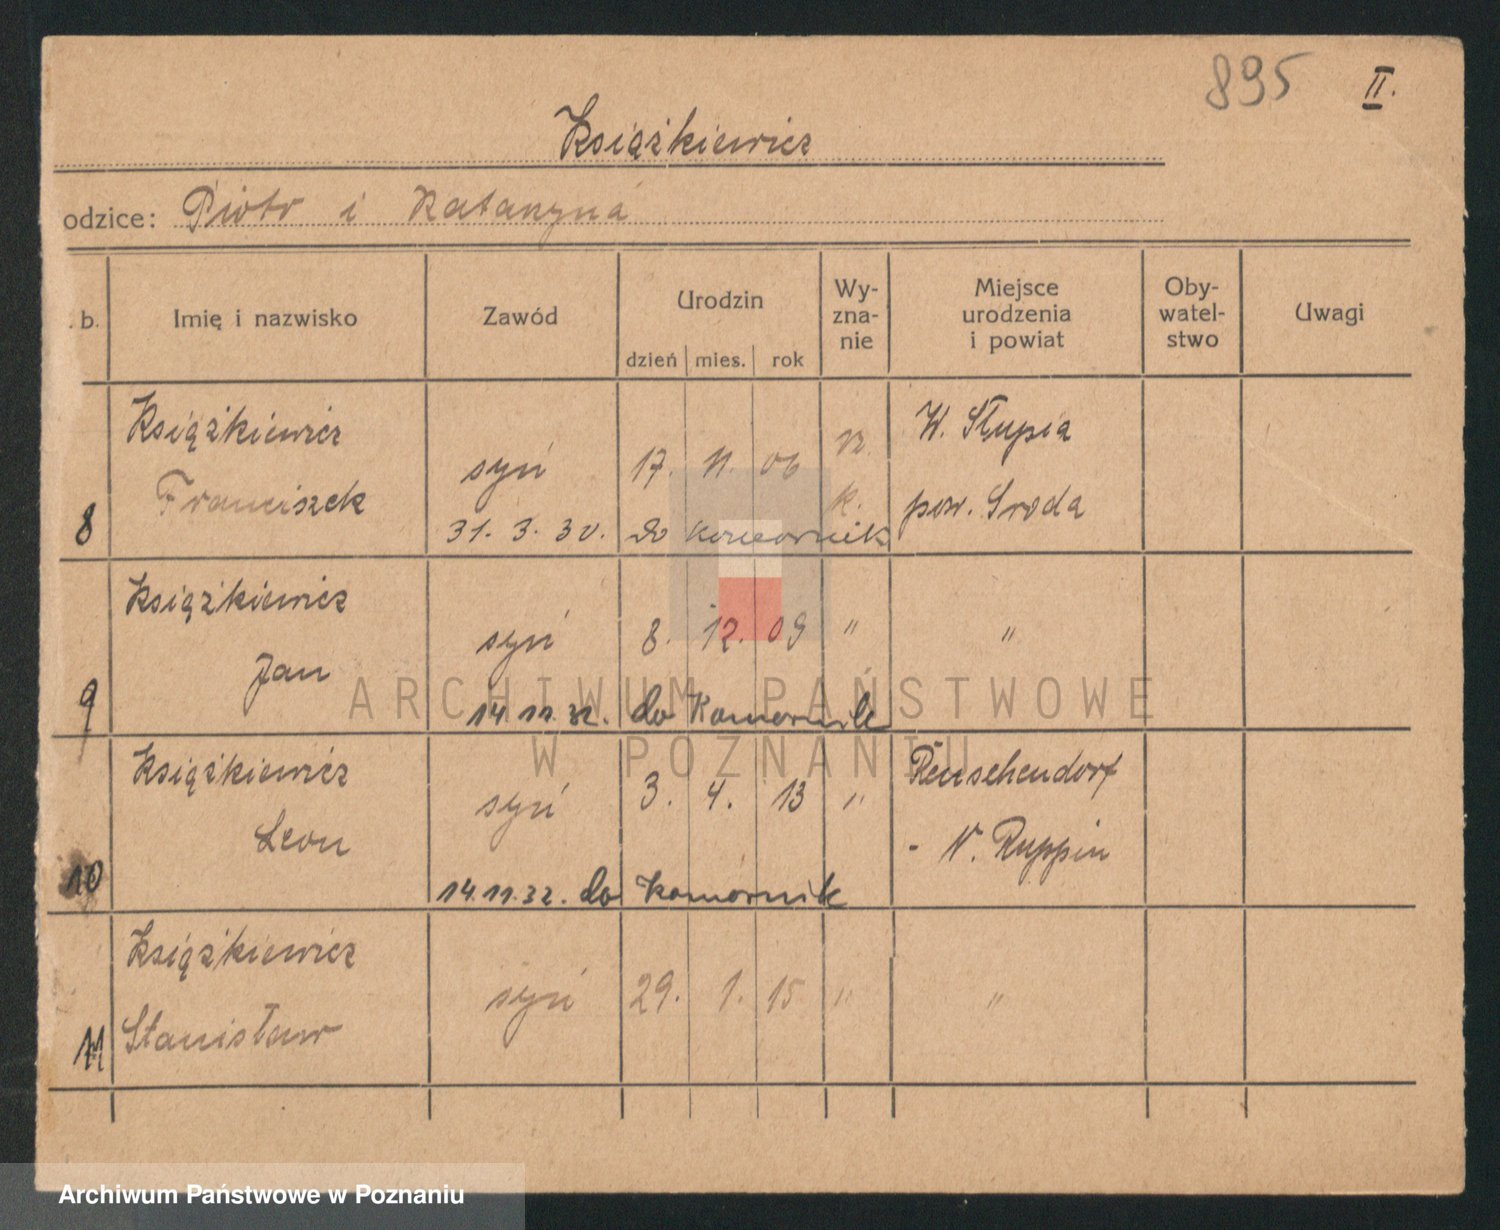 895 II.
Książkiewicz
odzice: Piotr i Katarzyna
. b. Imię i nazwisko Zawód Urodzin dzień mies. rok Wy-zna-nie Miejsce urodzenia i powiat Oby-watel-stwo Uwagi
Książkiewicz W. Słupia
8 Franciszek syn 17. 11. 06 rz. k. pow. Sroda
31. 3. 30. do Komornik
Książkiewicz
9 Jan syn 8. 12. 09 " "
14 11. 32. do Komornik
Książkiewicz Reuschendorf
10 Leon syn 3. 4. 13 " - N. Ruppin
14.11.32. do Komornik
Książkiewicz
11 Stanisław syn 29. 1. 15 " "
ARCHIWUM PAŃSTWOWE
W POZNANIU
Archiwum Państwowe w Poznaniu